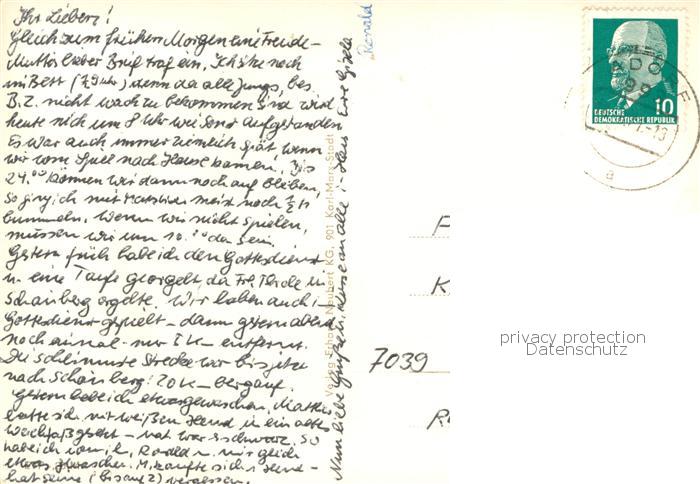 Ihr Lieben!
Gleich zum frühen Morgen eine Freude –
Mutters lieber Brief traf ein. Ich sitze noch
im Bett (½ 9 Uhr) denn da alle Jungs, bes.
B. Z. nicht wach zu bekommen sind wird
heute nich um 8 Uhr wie sonst aufgestanden
Es war auch immer ziemlich spät wenn
wir vom Spiel nach Hause kamen, bis
24.00 können wir dann noch auf bleiben,
so ging ich mit Matthias meist noch ½ h
bummeln. Wenn wir nicht spielen,
müssen wir um 10.00 da sein.
Gestern früh habe ich den Gottesdienst
u. eine Taufe georgelt, da Frl. in
Schönberg orgelte. Wir haben auch i.
Gottesdienst gespielt – dann gestern abend
noch einmal – nur 2 K – entfernt.
Die schlimmste Strecke war bis jetzt
nach Schönberg: 20 K – bergauf.
Gestern habe ich etwas gewaschen, Matthias
hatte sich mit weißen Hemd in ein altes
gesetzt – nat. war es schwarz. So
habe ich von ihm, Ronald u. mir gleich
etwas gewaschen. M. kaufte sich 1 Hemd –
hat seine (bis auf 2) vergessen.
Nun liebe Grüße u. Küsse an alle i. Haus Eure Gisela
Ronald
Verlag Erhard Neubert KG, 901 Karl-Marx-Stadt
DEUTSCHE
DEMOKRATISCHE REPUBLIK
10
7039
privacy protection
Datenschutz